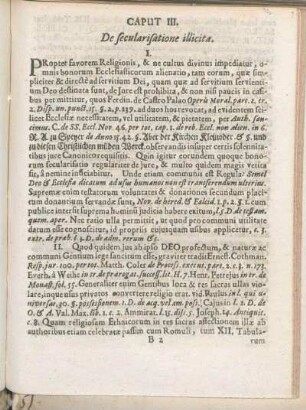 CAPUT III.
De secularisatione illicitâ.
I.
PRopter favorem Religionis, & ne cultus divinus impediatur, o-
mnis bonorum Ecclesiasticorum alienatio, tam eorum, quæ sim-
pliciter & directè ad servitium Dei, quam quæ ad servitium servientium
Deo destinata sunt, de Jure est prohibita, & non nisi paucis in casi-
bus permittitur, quos Ferdin. de Castro Palao Operis Moral. part. 2. tr.
2. Disp. un. punct. 15. §. 2. p. 157. ad duos hos revocat, ad evidentem scil.
licet Ecclesiæ necessitatem, vel utilitatem, & pietatem, per Auth.
C. de SS. Eccl. Nov. 46. per tot. cap. 1. de reb. Eccl. non alien. in 6.
Aber der Kirchen Kleinoder
zu diesen Christlichen milden Werck. observandis insuper certis solennitati-
bus jure Canonico requisitis. Quin igitur eorundem quoque bonorum
secularisatio regulariter de jure, & multo quidem magis vetita
sit, à nemine inficiabitur. Unde est Regula: Semel
Deo & Ecclesiæ dicatum ad usus humanos non est transferendum ulterius.
Supremæ enim testatorum voluntates & donationes secundum placitum
donantium servandæ sunt, Nov. de hered. & Falcid. l. 5. §. 1. cum
publicæ interfit suprema hominum judicia habere exitum, l. 5. D.
quam. aper. Nec ratio ulla permittit, ut quod pro communi utilitate
darum esse cognoscitur, id propriis cujusquam usibus applicetur, c. 5.
II. Quod quidem jus ab ipso DEO profectum, & naturæ ac
communi Gentium lege sancitum esse, graviter tradit Ernest. Cothman.
Resp. jur. 100. per tot. Matth. Coler. de Process. execut. part. 2. c. 3. n. 175.
Everh. à Weihe
Monast. fol. 55. Generaliter enim Gentibus loca & res sacras ullas vio-
lare, in que usus privatos convertere religio erat. vid. Paulus in l. qui u-
niversas, 30. §. possessionem. 1. D. de acq. vel am. poss. Cajus in l. 2. D. de
O. & A. Val. Max. lib. 1. c. 2. Ammirat. l. 15. diss. 5. Joseph. 14. Antiquit.
c. 8. Quam religiosam Ethnicorum in res sacras affectionem illæ ab
authoribus etiam celebratæ passim cum Romuli, tum XII. Tabula-
B 2
rum